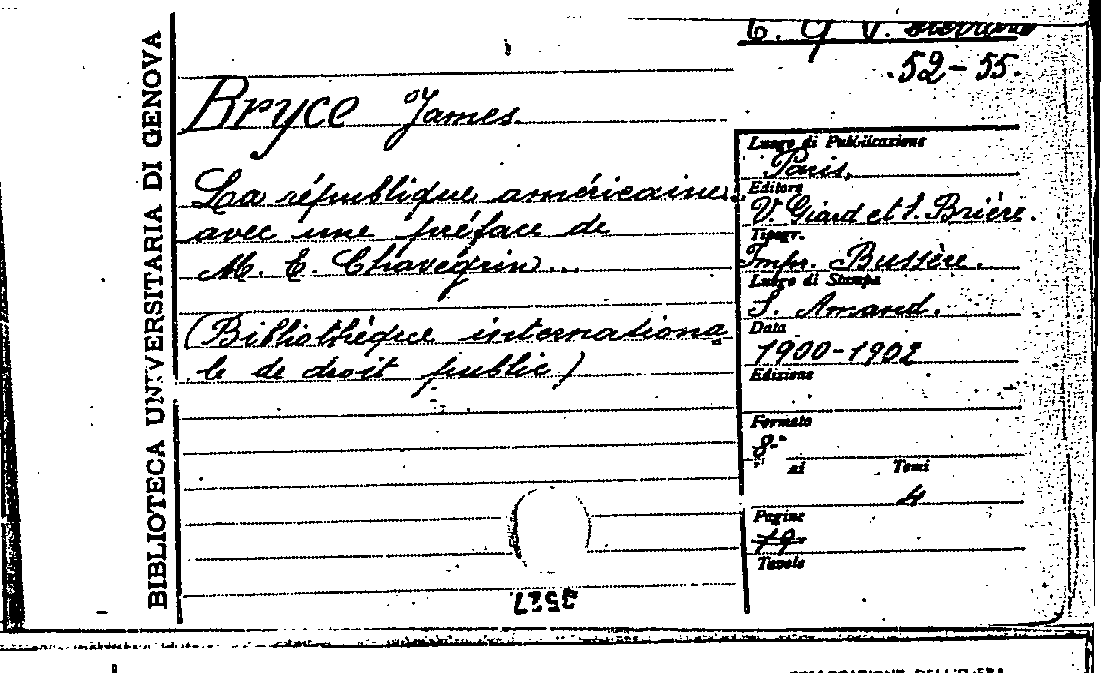 BIBLIOTECA UNIVERSITARIA DI GENOVA
52-55.
Bryce James.
La république américaine.
avec une préface de
M. E. Chavegrin...
(Bibliothèque internationa
le de droit public)
Luogo di Pubblicazione
Paris,
Editore
V. Giard et S. Brière.
Tipogr.
Impr. Bussère.
Luogo di Stampa
S. Amand.
Data
1900-1902
Edizione
Formato
8°
Tomi
4
Pagine
Tavole